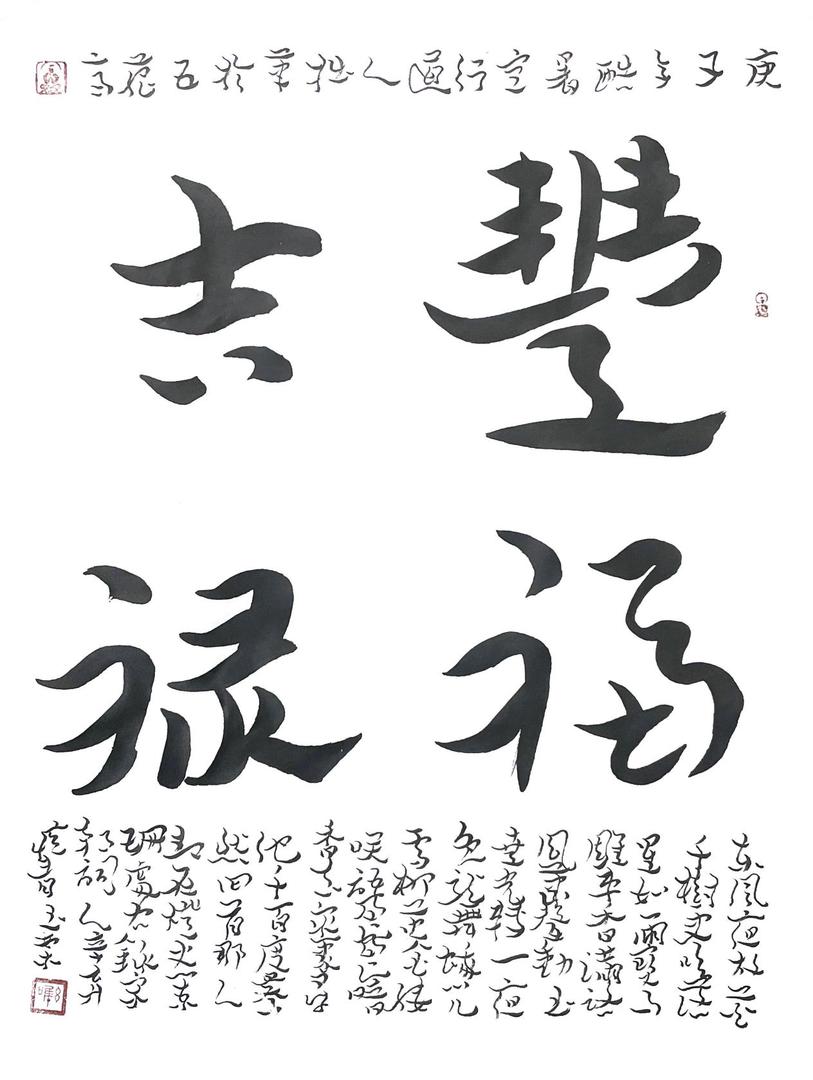 庚子年酷暑空行道人拙筆於五
豐福
吉祿
東風夜放花
千樹更吹落
星如雨寶馬
雕車香滿路
鳳簫聲動玉
壺光轉一夜
魚龍舞蛾兒
雪柳黃金縷
咲語盈盈暗
香去眾裏尋
他千百度驀
然回首那人
卻在燈火闌
珊處右錄宋
朝詞人辛棄
疾青玉案